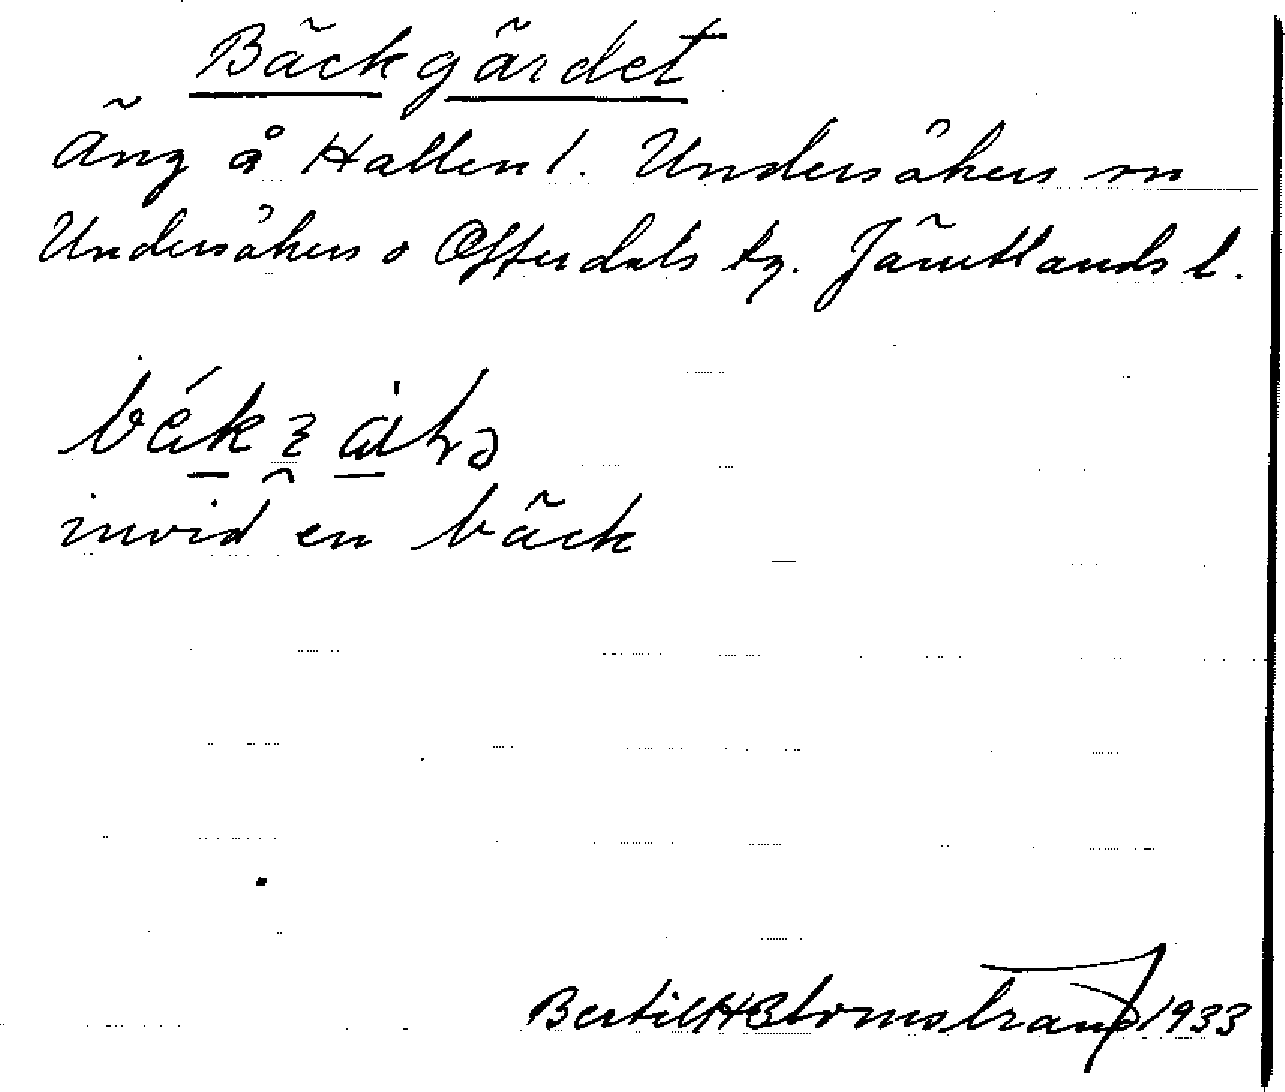 Bäckgärdet
Äng å Hallen 1. Undersåkers sn
Undersåkers o Offerdals tg. Jämtlands l.
invid en bäck
Bertil H Blomstrand 1933